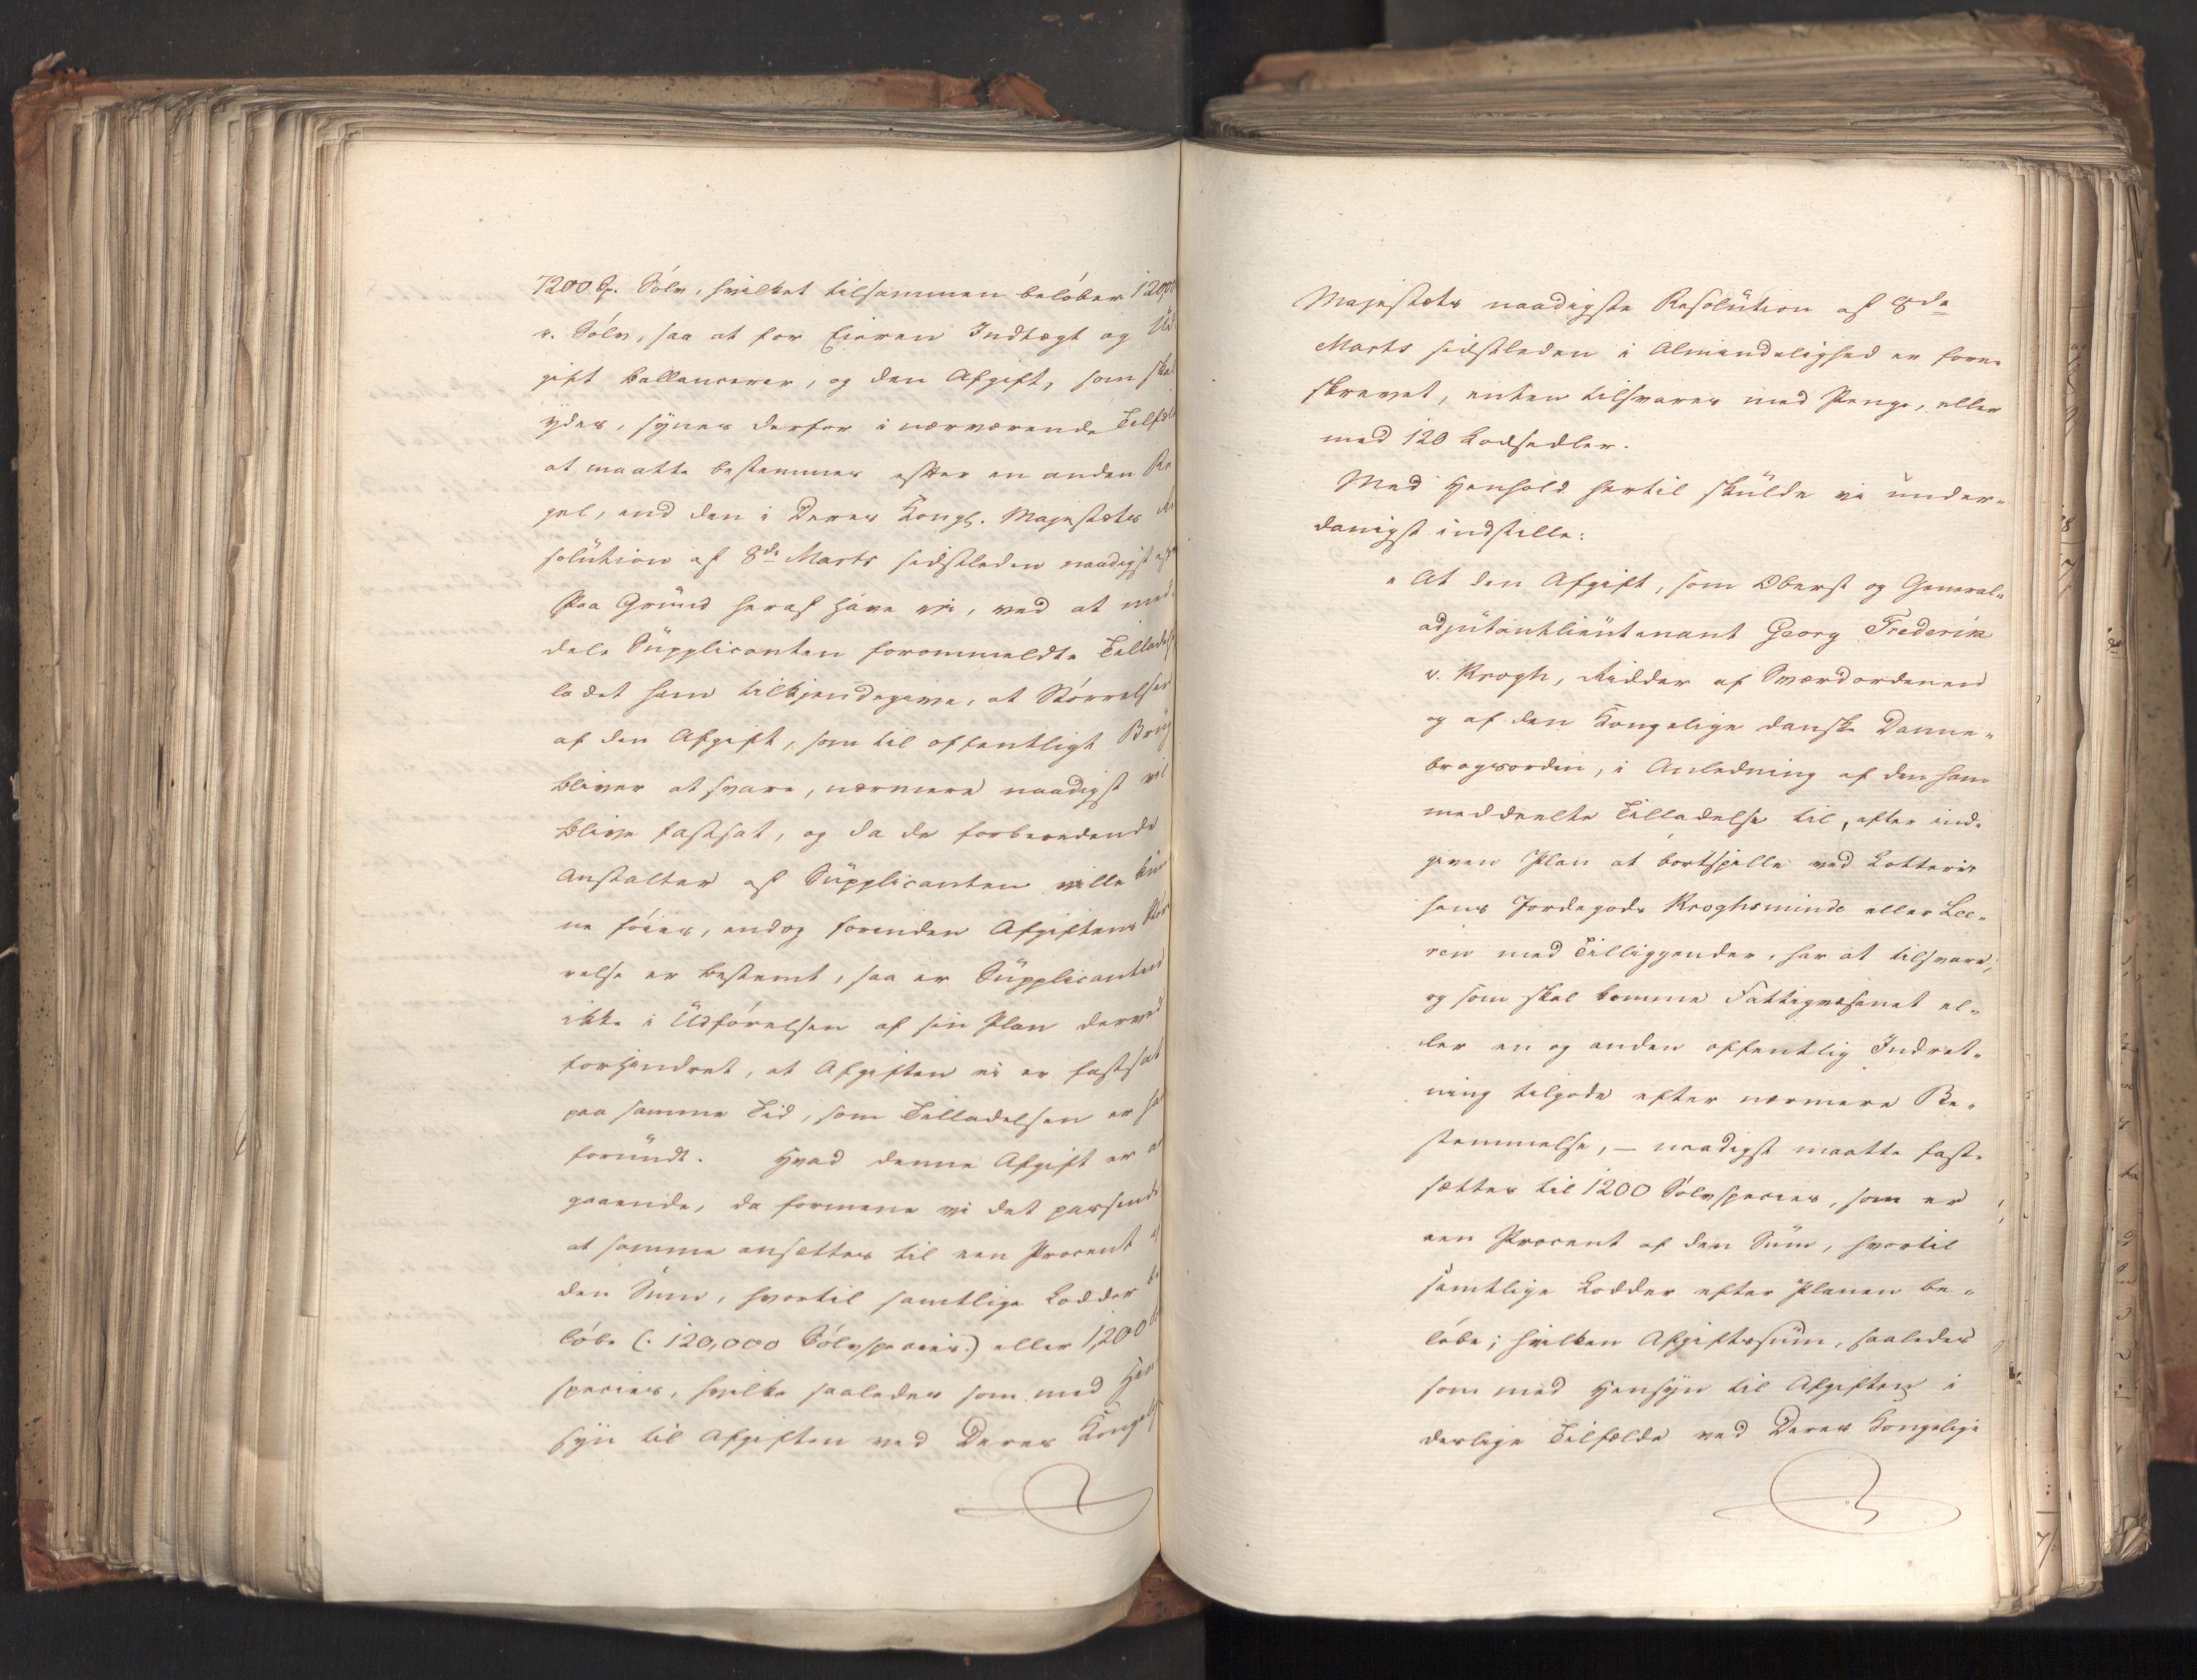 7200 Sp. Sólv, hvilket tilsammen belóber 120,00
r. Sólv, saa at for Eieren Indtægt og Ud
gift ballancerer, og den Afgift, som skal
ydes, synes derfor i nærværende Tilfæl
at maatte bestemmes efter en anden Re
gel, end den i Deres Kongl. Majestæts Re
solution af 8de Marts sidstleden naadigst
Paa Grund heraf have vi, ved at med
dele Supplicanten forommeldte Tilladelse
ladet ham tilkjendegive, at Störrelsen
af den Afgift, som til offentligt Brug
bliver at svare, nærmere naadigst vil
blive fastsat, og da de forberedende
Anstalter af Supplicanten ville kun
ne fóies, endog forinden Afgiftens Stör
relse er bestemt, saa er Supplicanten
ikke i Udförelsen af sin Plan derved
forhindret, at Afgiften ei er fastsat
paa samme Tid, som Tilladelsen er ham
forundt. Hvad denne Afgift er an
gaaende, da formene vi det passende
at samme ansættes til een Procent af
den Sum, hvortil samtlige Lodder be
lóbe (: 120,000 Sólvspecies :) eller 1,200
species, hvilke saaledes som med Hen
syn til Afgiften ved Deres Kongel
Majestæts naadigste Resolution af 8de
Marts sidstleden i Almindelighed er fore-
skrevet, enten tilsvares med Penge, eller
med 120 Lodsedler.
Med Henhold hertil skulde vi under-
danigst indstille:
"At den Afgift, som Oberst og General-
adjutantlieutenant Georg Frederik
v. Krogh, Ridder af Sværdordenen
og af den Kongelige danske Danne-
brogsorden, i Anledning af den ham
meddeelte Tilladelse til, efter ind-
given Plan at bortspille ved Lotterie
hans Jordegods Kroghsminde eller Lee-
ren med Tilliggender, har at tilsvare,
og som skal komme Fattigvæsenet el-
ler en og anden offentlig Indret-
ning tilgode efter nærmere Be-
stemmelse, — naadigst maatte fast-
sættes til 1200 Sólvspecies, som er
een Procent af den Sum, hvortil
samtlige Lodder efter Planen be-
lóbe; hvilken Afgiftssum, saaledes
som med Hensyn til Afgiften i
deslige Tilfælde ved Deres Kongelige